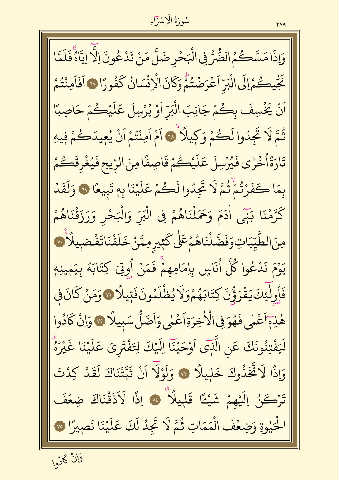 سُورَةُ الْاِسْرَٓاءِ
٢٨٩
وَاِذَا مَسَّكُمُ الضُّرُّ فِي الْبَحْرِ ضَلَّ مَنْ تَدْعُونَ اِلَّٓا اِيَّاهُۚ فَلَمَّا
نَجّٰيكُمْ اِلَى الْبَرِّ اَعْرَضْتُمْۜ وَكَانَ الْاِنْسَانُ كَفُورًا ﴿٦٧﴾ اَفَاَمِنْتُمْ
اَنْ يَخْسِفَ بِكُمْ جَانِبَ الْبَرِّ اَوْ يُرْسِلَ عَلَيْكُمْ حَاصِبًا
ثُمَّ لَا تَجِدُوا لَكُمْ وَكِيلًاۙ ﴿٦٨﴾ اَمْ اَمِنْتُمْ اَنْ يُعِيدَكُمْ فِيهِ
تَارَةً اُخْرٰى فَيُرْسِلَ عَلَيْكُمْ قَاصِفًا مِنَ الرِّيحِ فَيُغْرِقَكُمْ
بِمَا كَفَرْتُمْۙ ثُمَّ لَا تَجِدُوا لَكُمْ عَلَيْنَا بِهِ تَبِيعًا ﴿٦٩﴾ وَلَقَدْ
كَرَّمْنَا بَنِٓي اٰدَمَ وَحَمَلْنَاهُمْ فِي الْبَرِّ وَالْبَحْرِ وَرَزَقْنَاهُمْ
مِنَ الطَّيِّبَاتِ وَفَضَّلْنَاهُمْ عَلٰى كَثِيرٍ مِمَّنْ خَلَقْنَا تَفْضِيلًا۟ ﴿٧٠﴾
يَوْمَ نَدْعُوا كُلَّ اُنَاسٍ بِاِمَامِهِمْۚ فَمَنْ اُو۫تِيَ كِتَابَهُ بِيَمِينِهِ
فَاُو۬لٰٓئِكَ يَقْرَؤُ۫نَ كِتَابَهُمْ وَلَا يُظْلَمُونَ فَتِيلًا ﴿٧١﴾ وَمَنْ كَانَ فِي
هٰذِهِٓ اَعْمٰى فَهُوَ فِي الْاٰخِرَةِ اَعْمٰى وَاَضَلُّ سَبِيلًا ﴿٧٢﴾ وَاِنْ كَادُوا
لَيَفْتِنُونَكَ عَنِ الَّذِٓي اَوْحَيْنَٓا اِلَيْكَ لِتَفْتَرِيَ عَلَيْنَا غَيْرَهُۗ
وَاِذًا لَاتَّخَذُوكَ خَلِيلًا ﴿٧٣﴾ وَلَوْلَٓا اَنْ ثَبَّتْنَاكَ لَقَدْ كِدْتَ
تَرْكَنُ اِلَيْهِمْ شَيْـًٔا قَلِيلًاۗ ﴿٧٤﴾ اِذًا لَاَذَقْنَاكَ ضِعْفَ
الْحَيٰوةِ وَضِعْفَ الْمَمَاتِ ثُمَّ لَا تَجِدُ لَكَ عَلَيْنَا نَصِيرًا ﴿٧٥﴾